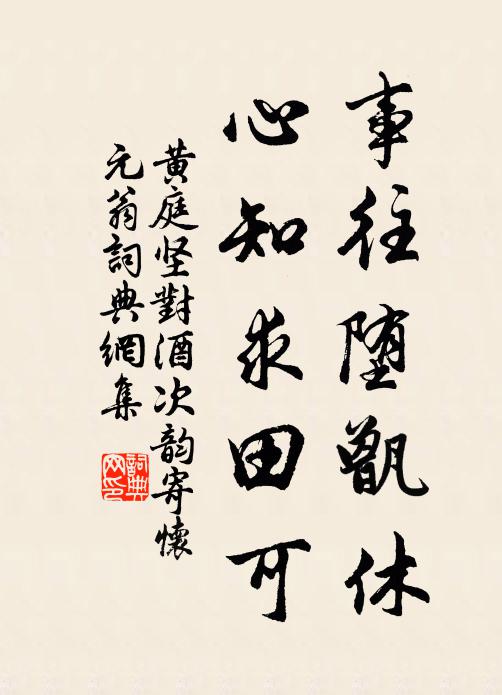 事往堕甑休
心知求田可
黄庭坚對酒次韵寄懷
元翁詞典網集
詞典
网印